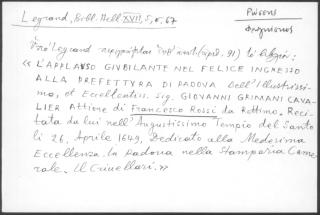 Legrand, Bibl. Hell. XVII, 5, σ. 67
Ρώσσης
Φραγκίσκος
Ὁ Legrand περιγράφει
« L'APPLAUSO GIUBILANTE NEL FELICE INGRESSO
ALLA PREFETTURA DI PADOVA Dell'Illustrissi-
mo, et Eccellentiss. sig. GIOVANNI GRIMANI CAVA-
LIER Attione di Francesco Rossi da Rettimo. Reci-
tata da lui nell'Augustissimo Tempio del Santo
li 26, Aprile 1649, Dedicato alla Medesima
Eccellenza. In Padova nella Stamperia Came-
rale. Il Crivellari. »